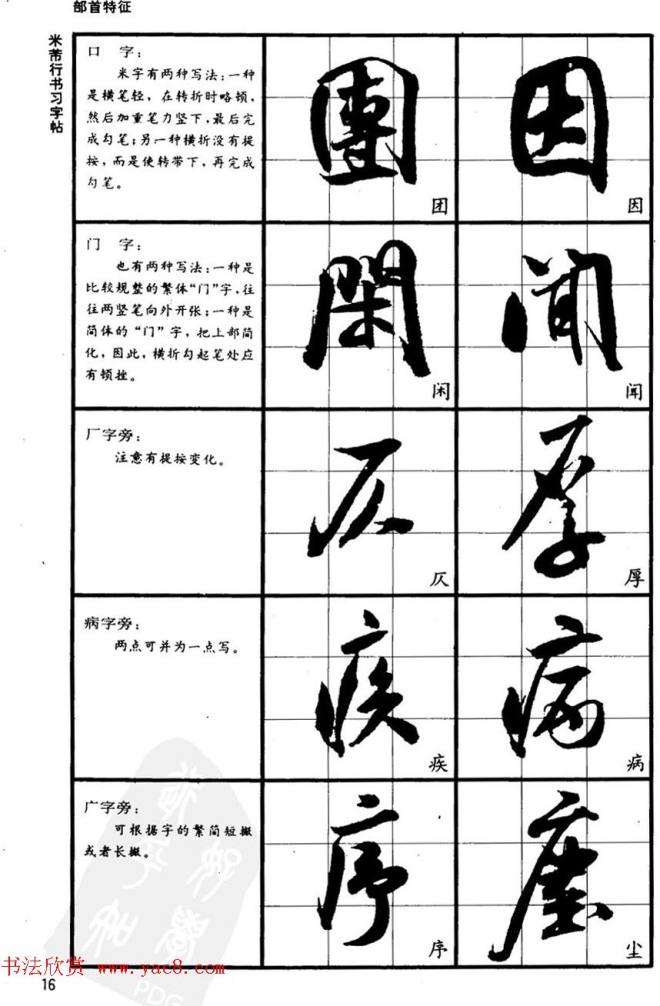 部首特征
米芾行书习字帖
口　字：
米字有两种写法：一种
是横笔轻，在转折时略顿，
然后加重笔力竖下，最后完
成勾笔；另一种横折没有提
按，而是使转带下，再完成
勾笔。
團
团
因
因
门　字：
也有两种写法：一种是
比较规整的繁体“门”字，往
往两竖笔向外开张；一种是
简体的“门”字，把上部简
化，因此，横折勾起笔处应
有顿挫。
閑
闲
闻
闻
厂字旁：
注意有提按变化。
仄
仄
厚
厚
病字旁：
两点可并为一点写。
疾
疾
病
病
广字旁：
可根据字的繁简短撇
或者长撇。
序
序
塵
尘
书法欣赏 www.yac8.com
16
PDG